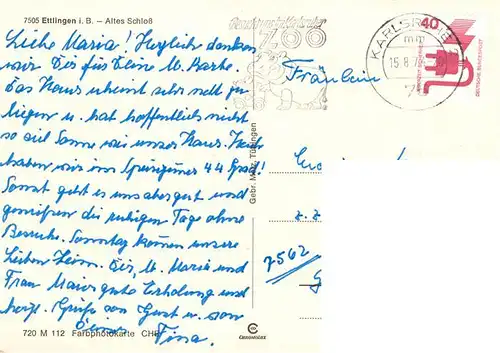 7505 Ettlingen i. B. – Altes Schloß
Liebe Maria! Herzlich danken
wir Dir für Deine M. Karte.
Das Haus scheint sehr nett zu
liegen u. hat hoffentlich nicht
so viel Sonne wie unser Haus.
haben wir im Speisezimmer 44 Grad!
Sonst geht es uns aber gut und
genießen die ruhigen Tage ohne
Besuche. Sonntag kommen unsere
Lieben heim. Dir, M. Maria und
Frau Maier gute Erholung und
herzl. Grüße von Gust u. von
Deiner Tina.
720 M 112 Farbphotokarte
Gebr. Metz, Tübingen
CHROMOLUX
ZOO
KARLSRUHE
mm
15.8.7
40
DEUTSCHE BUNDESPOST
Fräulein
z. Z.
7562